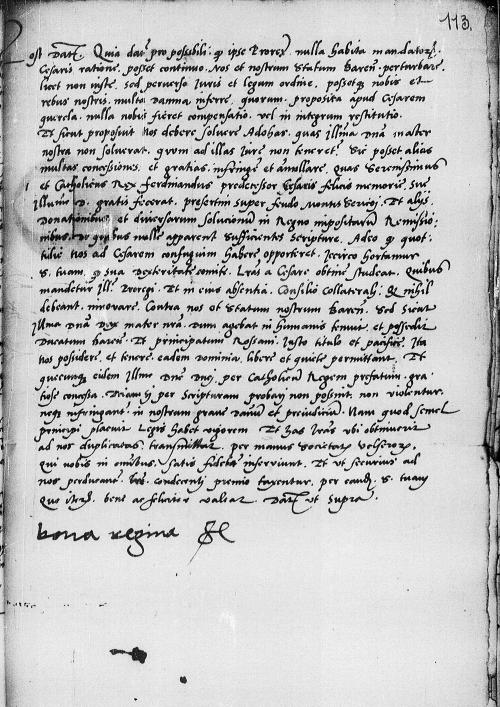 113.
ost Dat[].  Quia dat[] pro possibili: q[] ipse Prorex. nulla habita mandator[].
Cesaris ratione. posset continuo. Nos et nostrum Statum Baren[]. perturbare.
licet non iuste. sed perverso Iuris et legum ordine. possetq[] nobis et
rebus nostris. multa Damna inferre. quorum. proposita apud Cesarem
querela. nulla nobis fieret compensatio. vel in integrum restitutio.
Et sicut proposuit nos debere solvere Adohas. quas Ill[]ma Dna mater
nostra non solverat. quum ad illas Iure non teneret[]. Sic posset alias
multas concessiones. et gratias. infringere et annullare. quas Serenissimus
et Catholicus Rex Ferdinandus predecessor Cesaris felicis memorie. Sue
Ill[] D. gratis fecerat. presertim super feudo Montis Et alijs.
Donationibus. et diversarum solucionum in Regno impositarum Remissio:
nibus. De quibus nulle apparent Sufficientes Scripture. Adeo q[] quot:
tidie nos ad Cesarem confugium habere oporteret. Iccirco hortamur
S. tuam. q[] sua Dexteritate Lr[]as a Cesare obtine[] studeat. Quibus
mandetur Ill[]. Proregi. Et in eius absentia. Consilio Collaterali: & nihil
debeant. innovare. Contra nos et Statum nostrum Baren[]. Sed Sicut
Ill[]ma Dna Dux mater n[]ra. Dum agebat in humanis tenuit. et possedit
Ducatum Baren[]. Et principatum Rossani. Iusto titulo et pacifice. Ita
nos possidere. et tenere. eadem Dominia. libere et quiete permittant. Et
quecunq[] eidem Ill[]me Dne Duci. per Catholicum Regem prefatum. gra:
tiose concessa. Etiam si per Scripturam probari non possint. non violentur.
neq[] infringant[]. in nostrum grave Damnum et preiudicium. Nam quod semel
principi placuit Legis habet vigorem. Et has Lr[]as ubi obtinuerit
ad nos duplicatas. transmittat. per manus Societatis Velseror[].
qui nobis in omnibus. satis fideliter inserviunt. Et ut securius ad
nos perducant[]. condecenti premio taxentur. per eand[]. S. tuam
Que bene ac feliciter valeat. Dat[] ut Supra.
bona regina